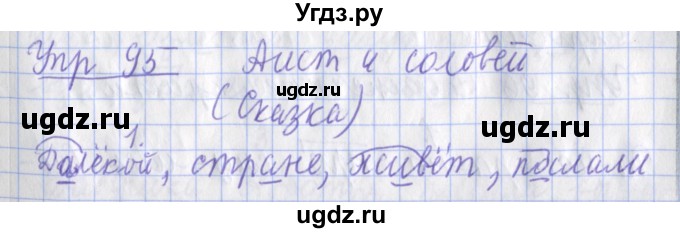 Угдз.ру
Упр 95 Аист и соловей
ugdz.ru
ugdz.ru ugdz.ru
(Сказка)
1.
Далёкой, стране, живёт, послали
ugdz.ru